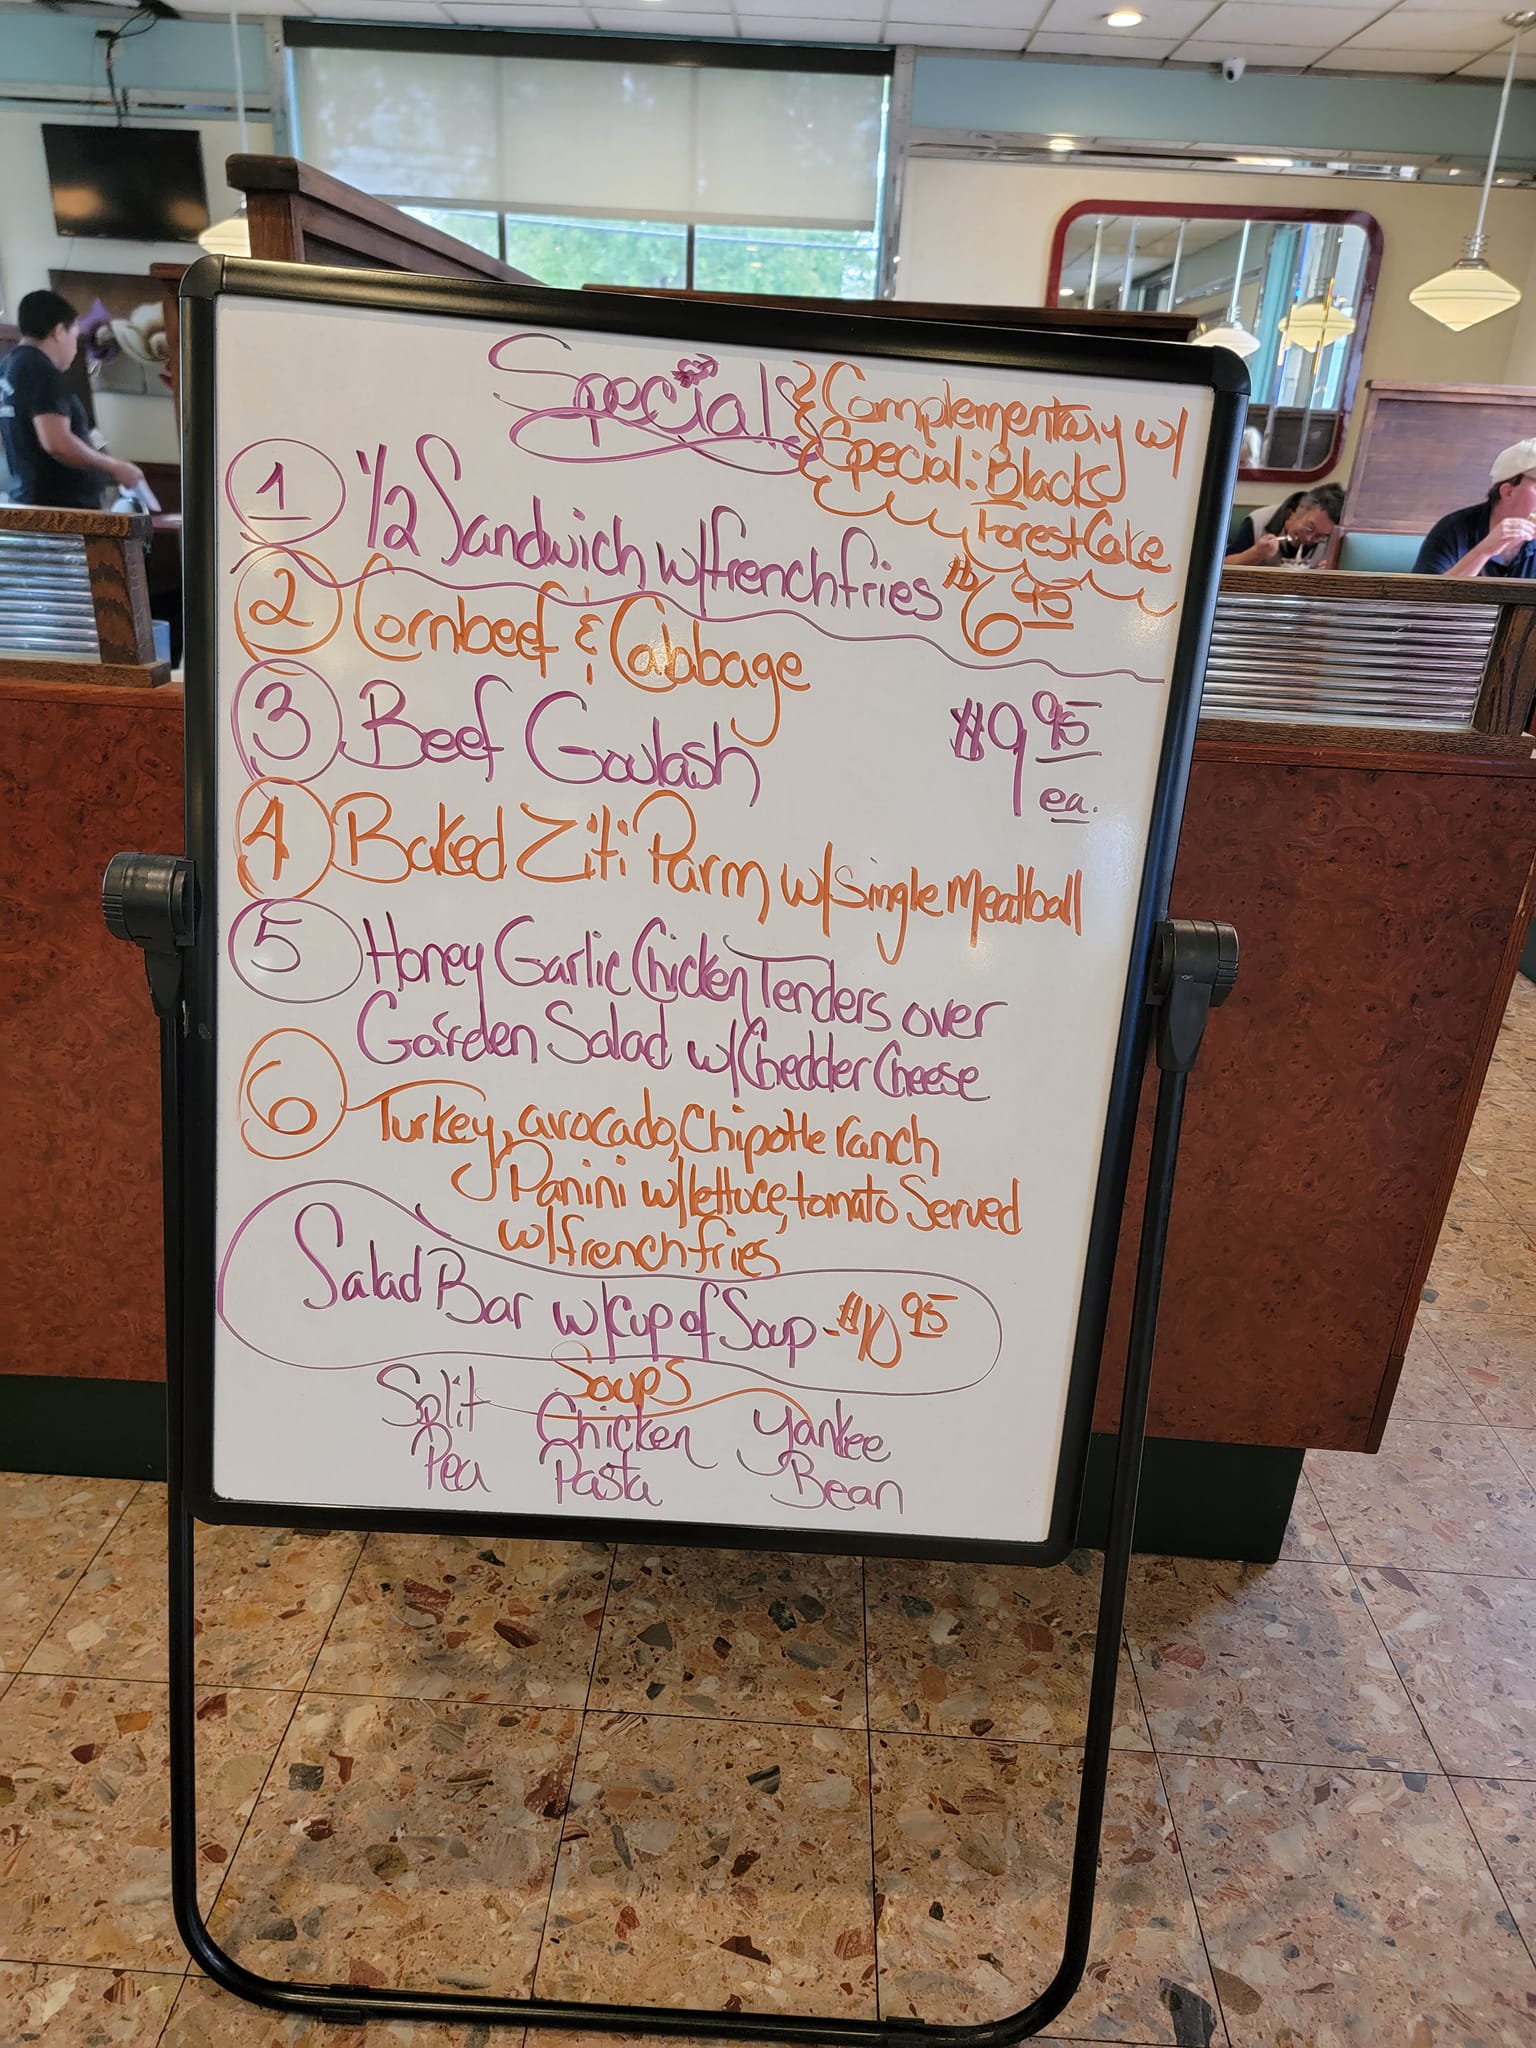 Specials
Complementary w/
Special: Blacks
Forest Cake
1 1/2 Sandwich w/frenchfries $6 95
2 Cornbeef & Cabbage
3 Beef Goulash $9 95 ea.
4 Baked Ziti Parm w/Single Meatball
5 Honey Garlic Chicken Tenders over
Garden Salad w/Chedder Cheese
6 Turkey, avocado, Chipotle ranch
Panini w/lettuce, tomato Served
w/frenchfries
Salad Bar w/Cup of Soup - $10 95
Soups
Split Chicken Yankee
Pea Pasta Bean